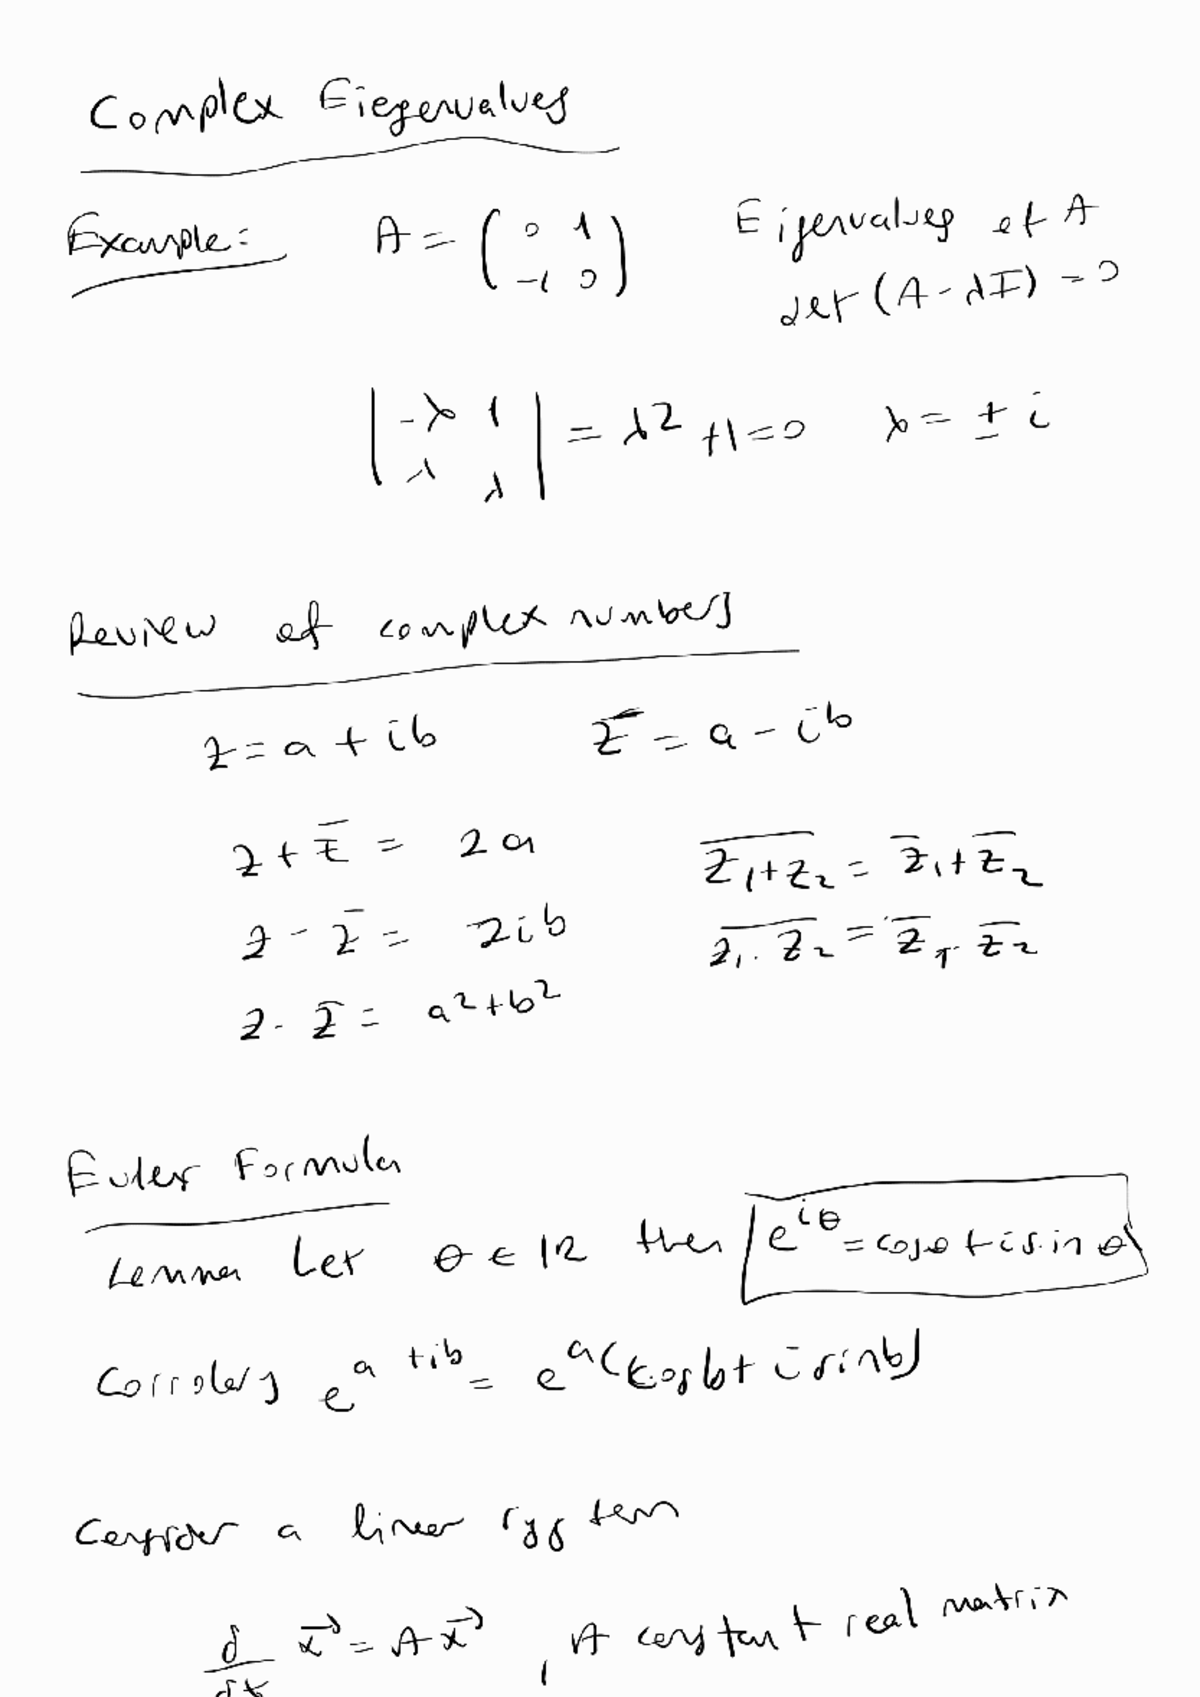 Complex Eiegervalues
Example: A = ( 0 1 -1 0 ) Eigervalues of A
det (A - λI) = 0
| -λ 1 λ λ | = λ2 + 1 = 0 λ = ± i
Review of complex numbers
z = a + ib z̄ = a - ib
z + z̄ = 2a \overline{z1 + z2} = z̄1 + z̄2
z - z̄ = 2ib \overline{z1 . z2} = z̄1 . z̄2
z . z̄ = a² + b²
Euler Formula
Lemma Let θ ∈ IR then e^{iθ} = cosθ + i sin θ
Corrolary e^{a + ib} = e^a (cos b + i sin b)
Consider a linear system
d/dt x⃗ = A x⃗ , A constant real matrix